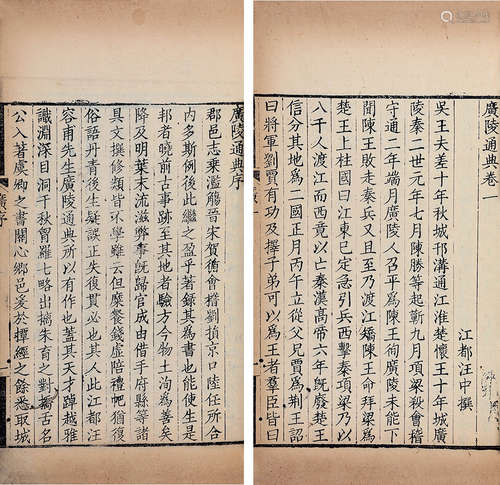 廣陵通典卷一
江都汪中撰
吳王夫差十年秋城邗溝通江淮楚懷王十年城廣
陵秦二世元年七月陳勝等起蘄九月項梁殺會稽
守通二年端月廣陵人召平爲陳王徇廣陵未能下
聞陳王敗走秦兵又且至乃渡江矯陳王命拜梁爲
楚王上柱國曰江東已定急引兵西擊秦項梁乃以
八千人渡江而西竟以亡秦漢高帝六年旣廢楚王
信分其地爲二國正月丙午立從父兄賈爲荆王詔
曰將軍劉賈有功及擇子弟可以爲王者羣臣皆曰
廣陵通典序
郡邑志乘濫觴晉宋賀循會稽劉損京口陸任所合
內多斯例後此繼之盈乎著錄其爲書也能使生是
邦者曉前古事跡至其地者驗方今物土洵爲善矣
降及明葉末流滋弊事旣歸官成由借手府縣等諸
具文撰修類皆不學雖云但糜餐錢虛陪禮帊猶復
俗語丹青後生疑誤正失復貫必也其人此江都汪
容甫先生廣陵通典所以有作也蓋其天才踔越雅
識淵深目洞千秋胷羅七略出摛朱育之對古名
公入著虞卿之書關心鄉邑爰於撢經之餘悉取城
廣序